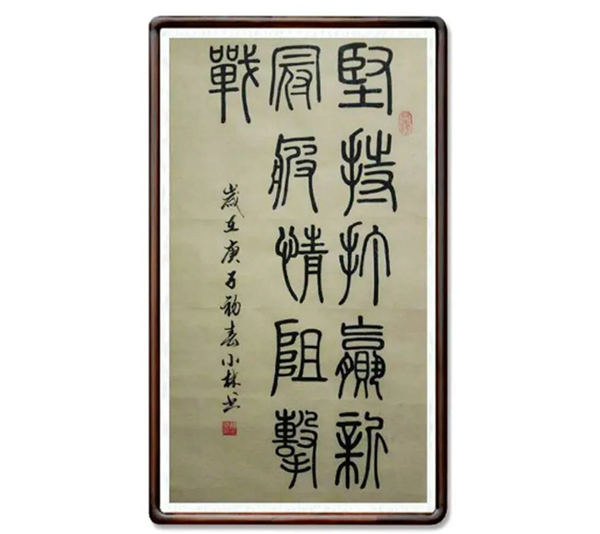 堅持打贏新
冠疫情阻擊
戰
歲在庚子初春小林书